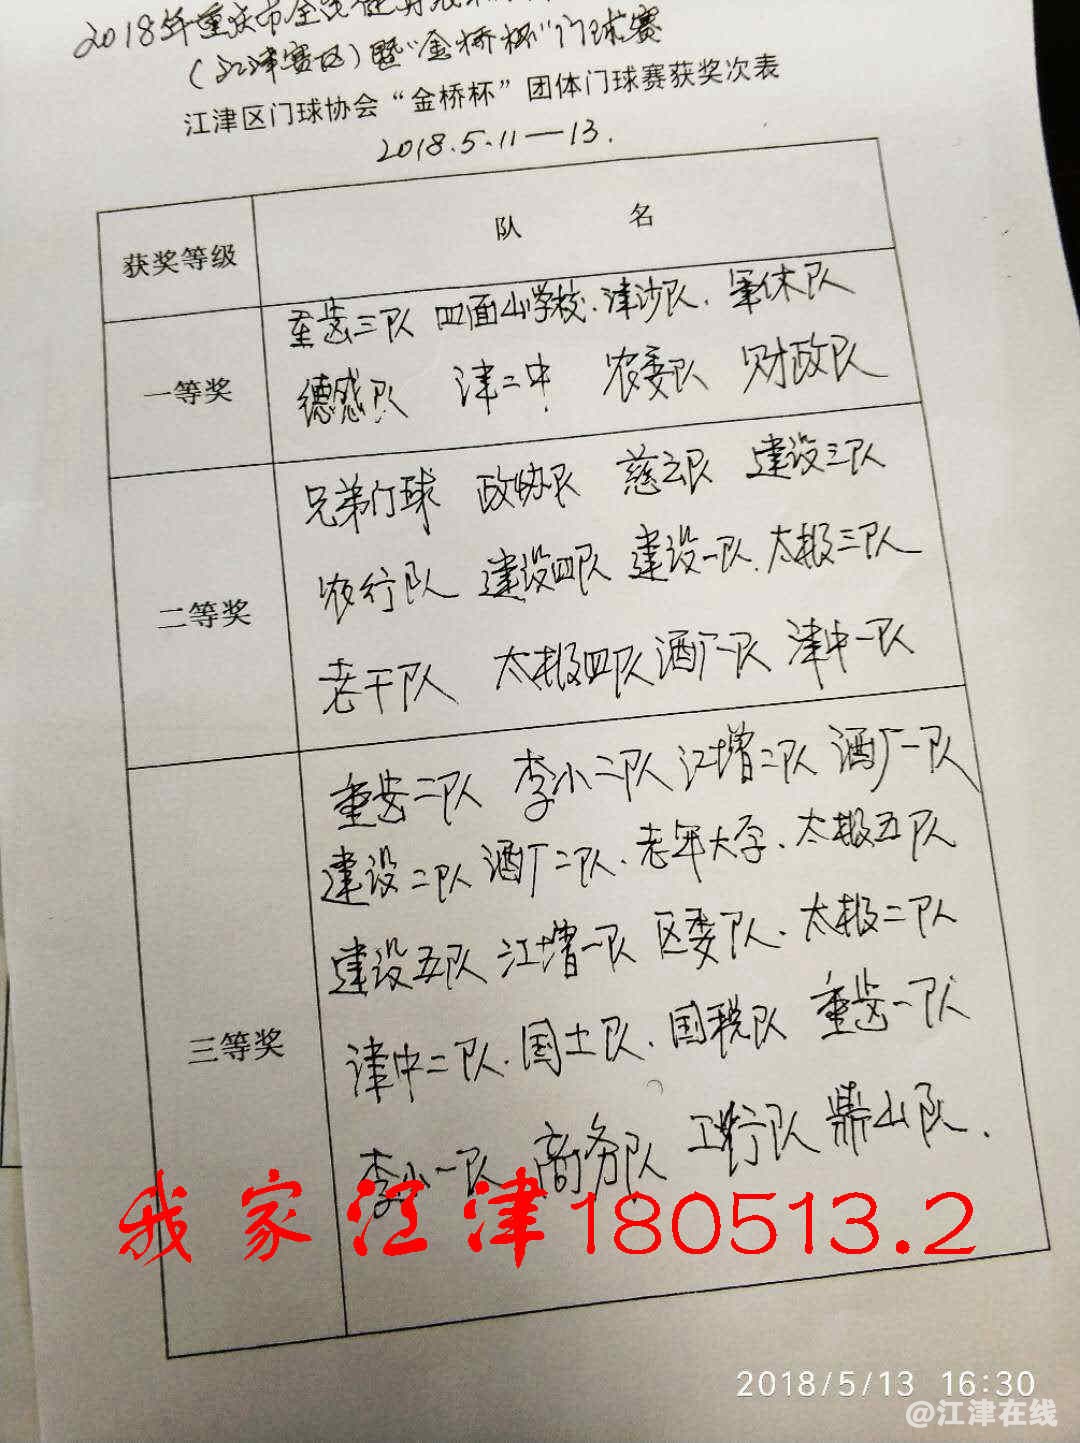 2018年重庆市全民健身
(江津赛区)暨“金桥杯”门球赛
江津区门球协会“金桥杯”团体门球赛获奖次表
2018.5.11—13.
获奖等级 队 名
一等奖
重齿三队 四面山学校.津涉队.军休队
德感队 津二中 农委队 财政队
二等奖
兄弟门球 政协队 慈云队 建设三队
农行队 建设四队 建设一队.太极三队
老干队 太极四队 酒厂一队 津中一队
三等奖
重齿二队 李小二队 江增二队 酒厂一队
建设二队 酒厂二队.老年大学.太极五队
建设五队 江增一队 区委队.太极二队
津中二队.国土队.国税队 重齿一队
李小一队 商务队 工行队 鼎山队.
我家江津180513.2
2018/5/13 16:30
@江津在线